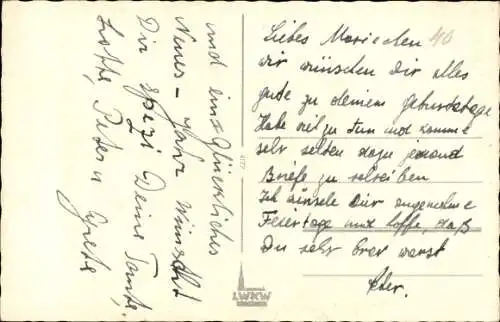 Liebes Mariechen 40
wir wünschen Dir alles
gute zu deinem Geburtstage
Habe viel zu tun und komme
sehr selten dazu jemand
Briefe zu schreiben
Ich wünsche Dir angenehme
Feiertage und hoffe, daß
Du sehr brav warst
und ein Glückliches
Neues-Jahr wünscht
Dir Deine Tante,
Lotte, Peter u
Grete
LWKW